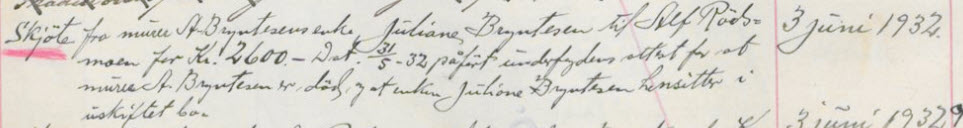 Skjöte fra murer A. Bryntesens enke, Juliane Bryntesen til Alf Röds= 3 juni 1932.
moen for Kr. 2600.- Dat. 31/5-32 påfört underfogdens attest for at
murer A. Bryntesen er död, og at enken Juliane Bryntesen hensitter i
uskiftet bo. 3 juni 1932